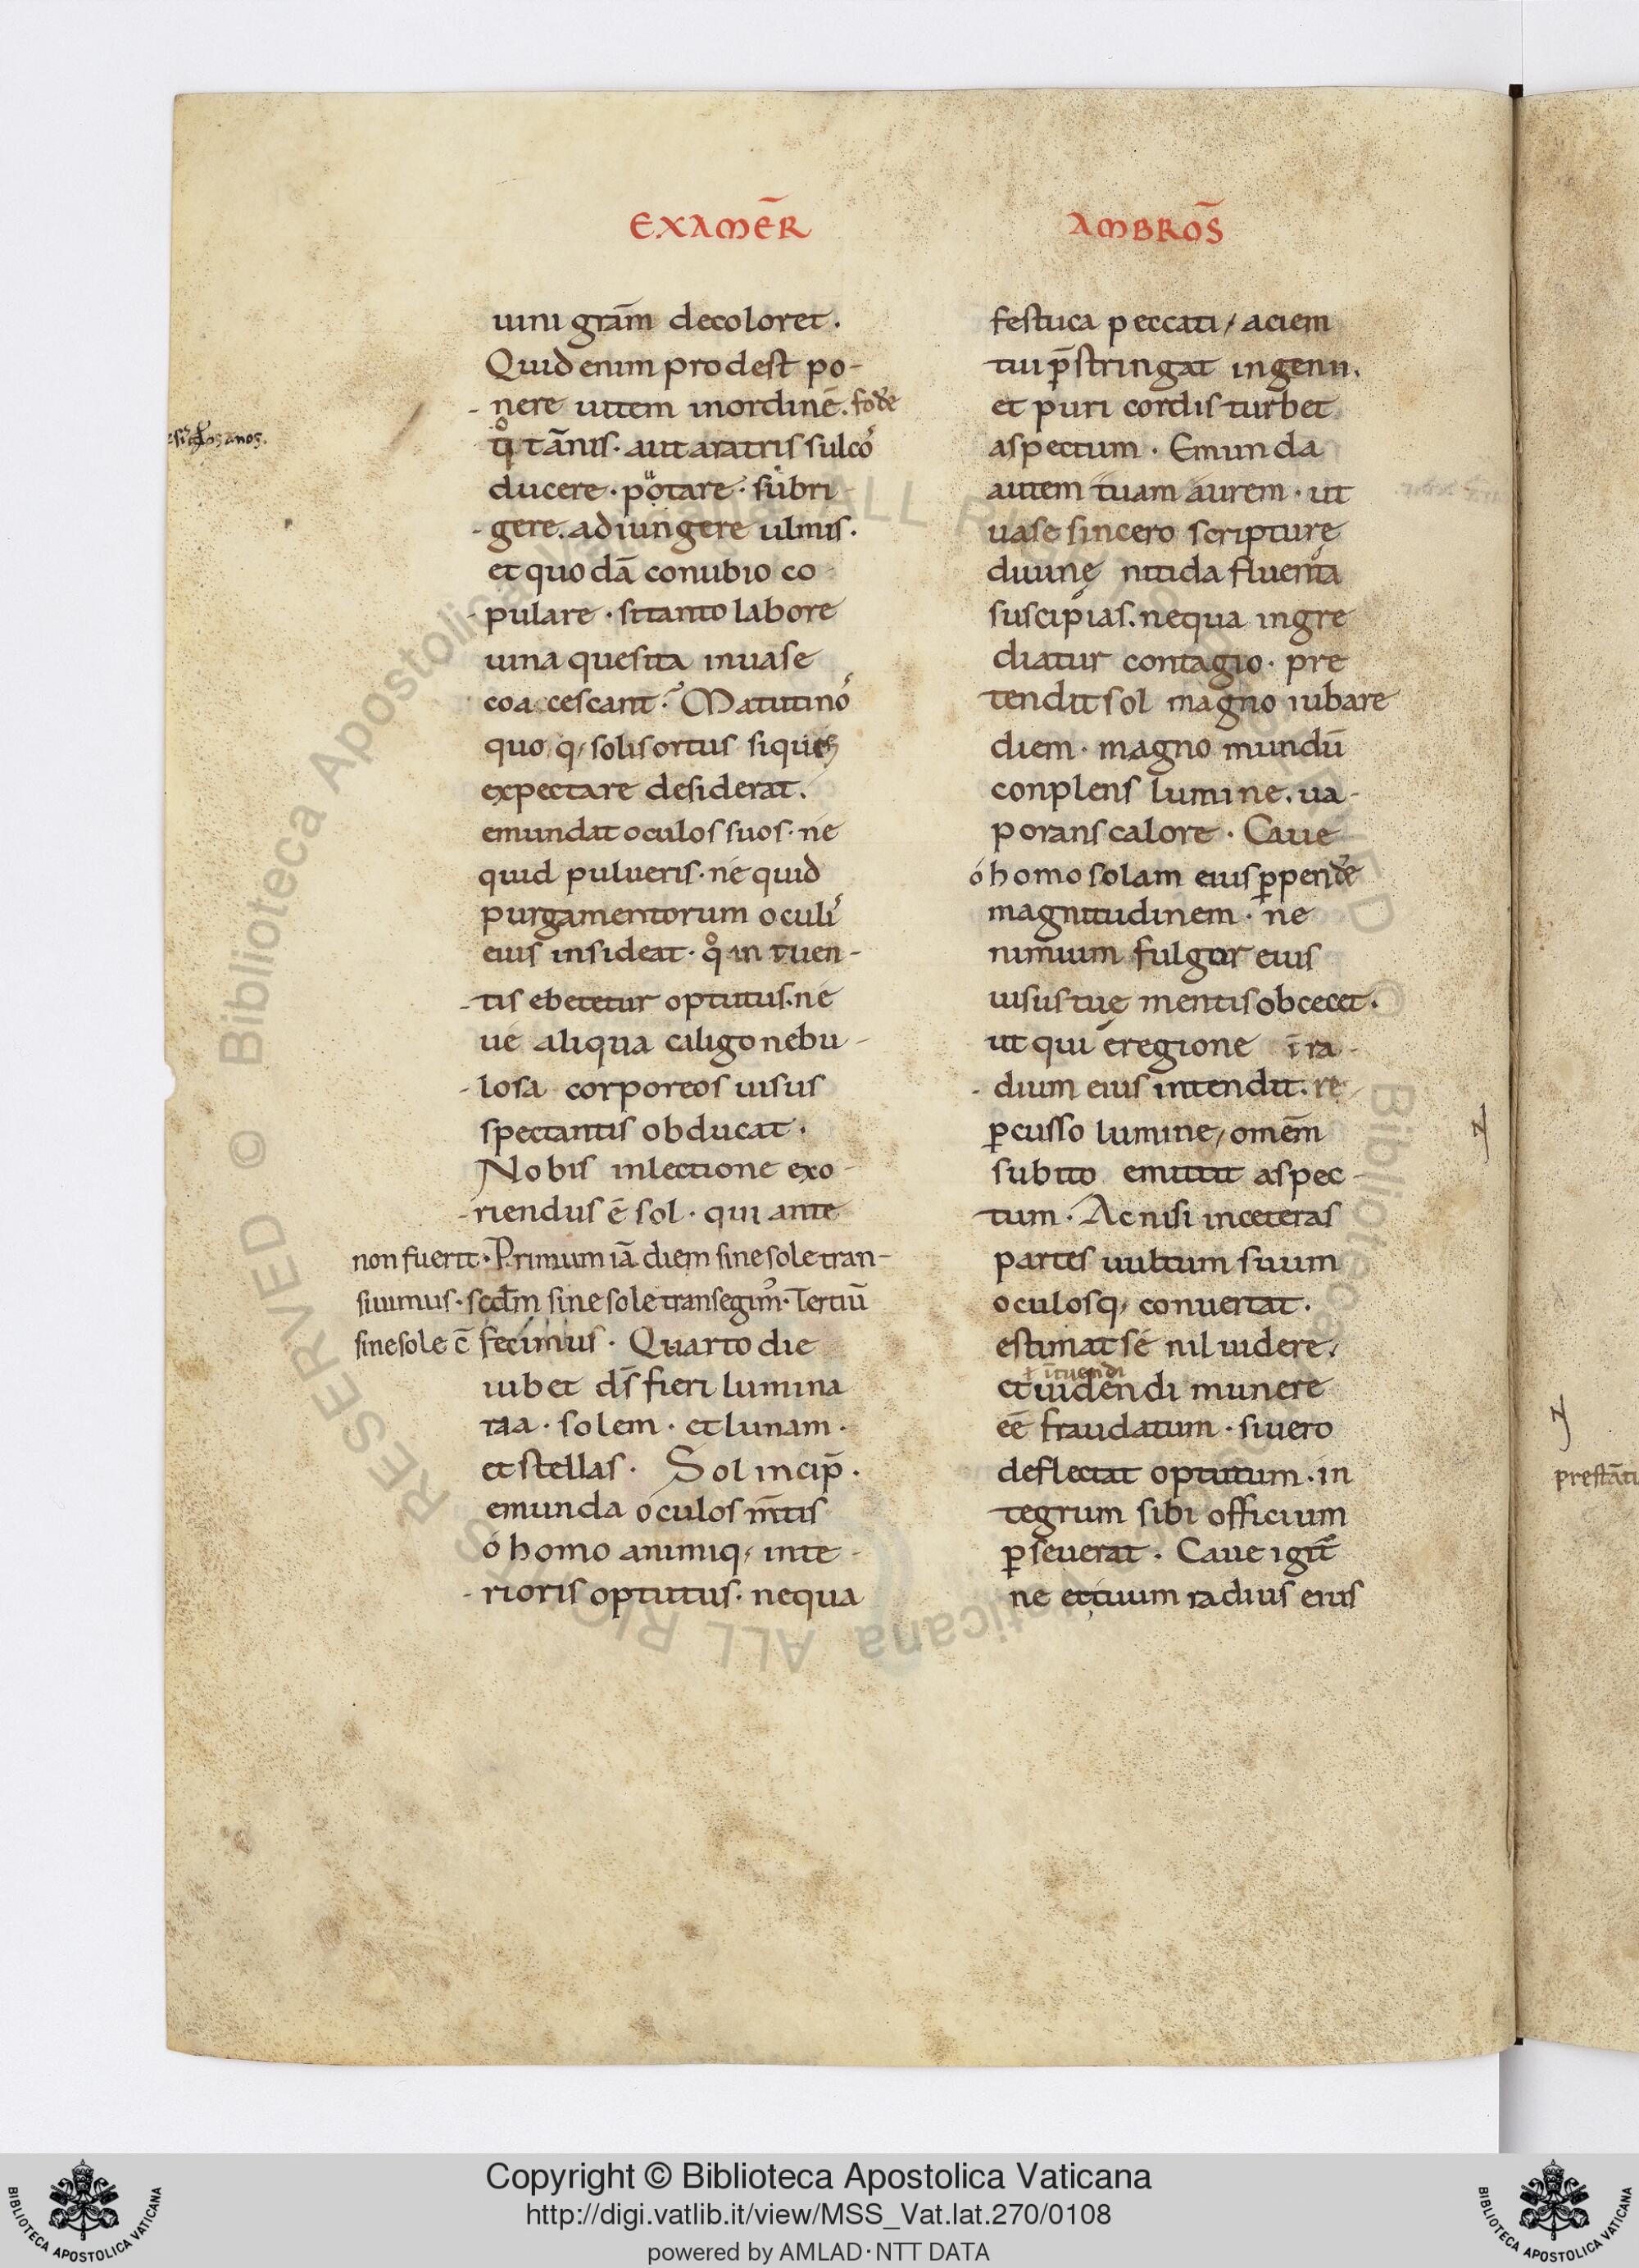 EXAMER̄
uini grām decoloret.
Quid enim prodest po-
nere uitem in ordinē. fodere
t̄annis· aut aratris sulcos
ducere· potare· subri
gere. adiungere ulmis.
et quodā conubio co
pulare· si tanto labore
uina quesita in uase
coacescant. Matutinos
quoq; solis ortus siquis
expectare desiderat.
emundat oculos suos· ne
quid pulueris· ne quid
purgamentorum oculis
eius insideat· qͦ intuen-
tis ebetetur optutus. ne
ue aliqua caligo nebu-
losa corporeos uisus
spectantis obducat.
Nobis in lectione exo-
riendus ē sol· qui ante
non fuerit· Primum iā diem sine sole tran-
siuimus· scdm̄ sine sole transegim᾿· Tertiū
sine sole c̄ fecimus· Quarto die
iubet d̄s fieri lumina
ria· solem· et lunam·
et stellas· Sol incip̄.
emunda oculos m̄tis
ó homo animiq; inte-
rioris optutus· nequa
AMBROS̄
festuca peccati, aciem
tui p̄stringat ingenii.
et puri cordis turbet
aspectum· Emunda
autem tuam aurem· ut
uase sincero scripturę
diuinę nitida fluenta
suscipias. nequa ingre
diatur contagio· pre
tendit sol magno iubare
diem· magno mundū
conplens lumine. ua-
porans calore· Caue
ó homo solam eius ꝑpendere
magnitudinem· ne
nimium fulgor eius
uisus tuę mentis obcecet.
ut qui e regione ī ra-
dium eius intendit. re
ꝑcusso lumine, omēm
subito emittit aspec-
tum· Ac nisi in ceteras
partes uultum suum
oculosq; conuertat.
estimat sé nil uidere,
ł ītuendi
et uidendi munere
eē fraudatum· si uero
deflectat optutum. in
tegrum sibi officium
ꝑseuerat. Caue igit̄
ne et tuum radius eius
Copyright © Biblioteca Apostolica Vaticana
http://digi.vatlib.it/view/MSS_Vat.lat.270/0108
powered by AMLAD·NTT DATA
BIBLIOTECA APOSTOLICA VATICANA
BIBLIOTECA APOSTOLICA VATICANA